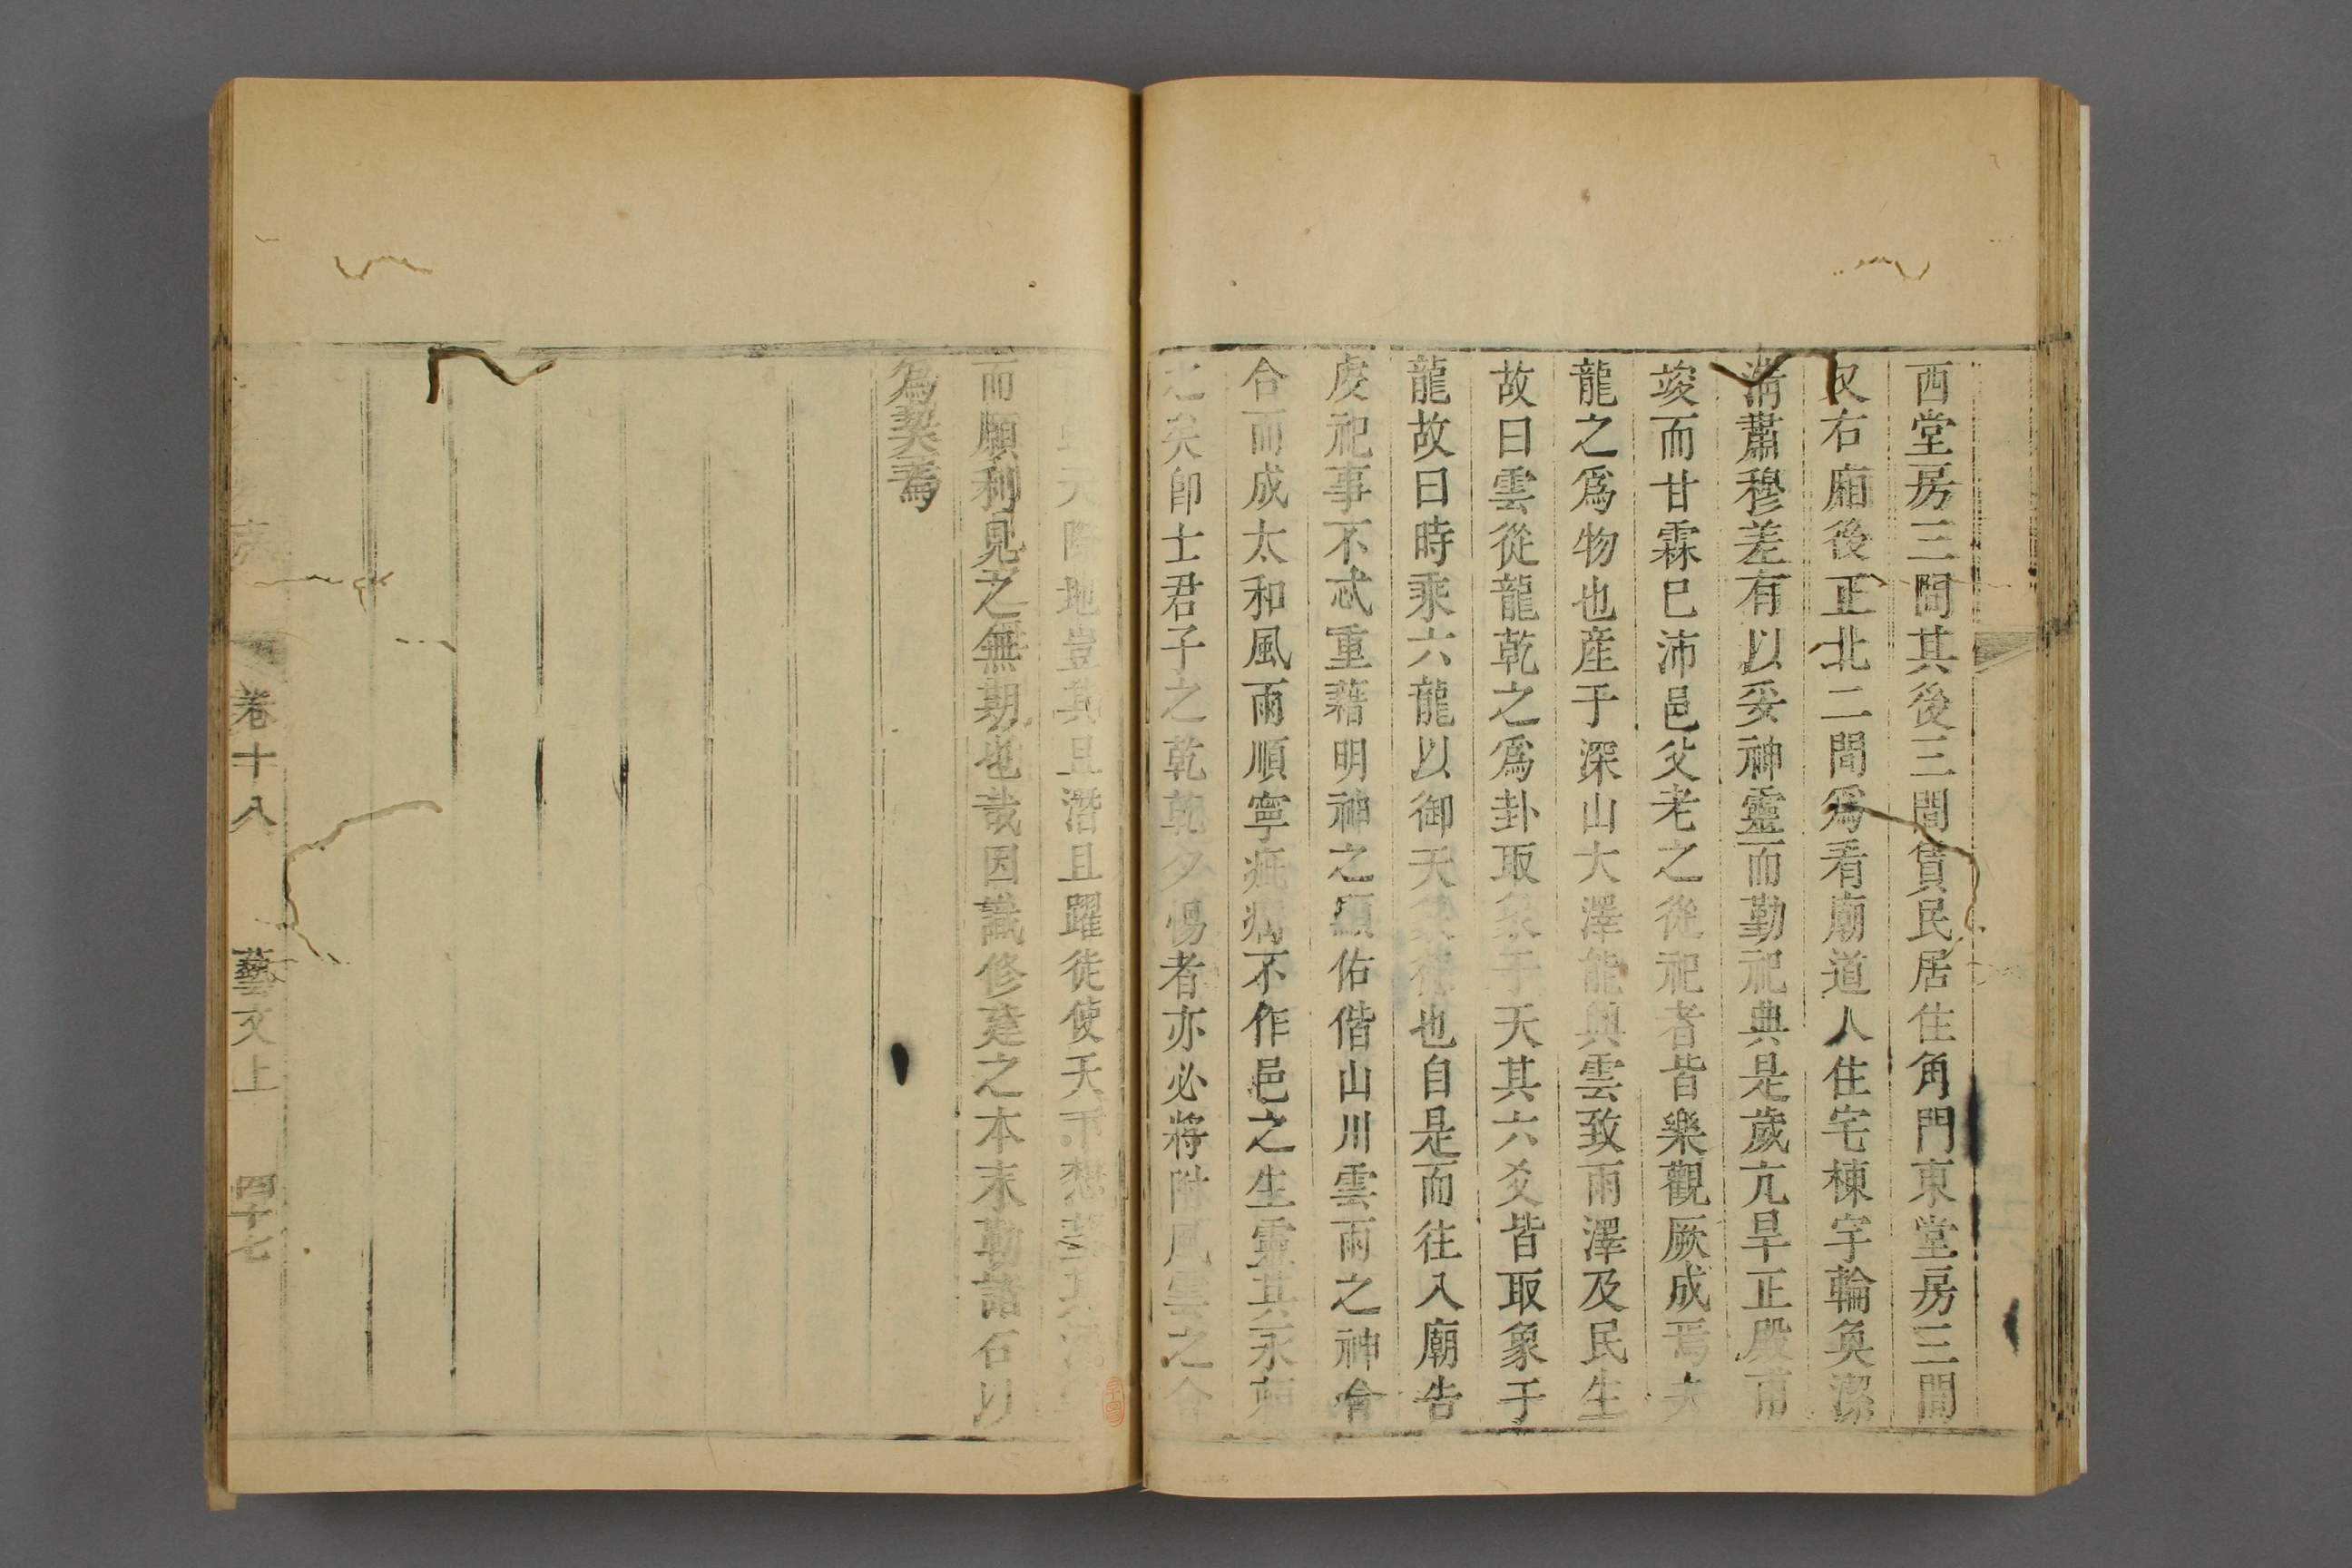 西堂房三間其後三間賃民居住角門東堂房三間
又右廂後正北二間爲看廟道人住宅棟宇輪奐潔
清肅穆差有以妥神靈而勤祀典是歲亢旱正殿甫
竣而甘霖巳沛邑父老之從祀者皆樂觀厥成焉夫
龍之爲物也産于深山大澤能興雲致雨澤及民生
故曰雲從龍乾之爲卦取象于天其六爻皆取象于
龍故曰時乘六龍以御天也自是而往入廟告
虔祀事不忒重藉明神之顯佑偕山川雲雨之神會
合而成太和風雨順寧疵癘不作邑之生靈其永
之矣卽士君子之乾乾夕惕者亦必將附風雲之會
地豈其且潛且躍徒使天下想
而願利見之無期也哉因識修建之本末勒諸石以
爲契焉
卷十八
藝文上
四十七